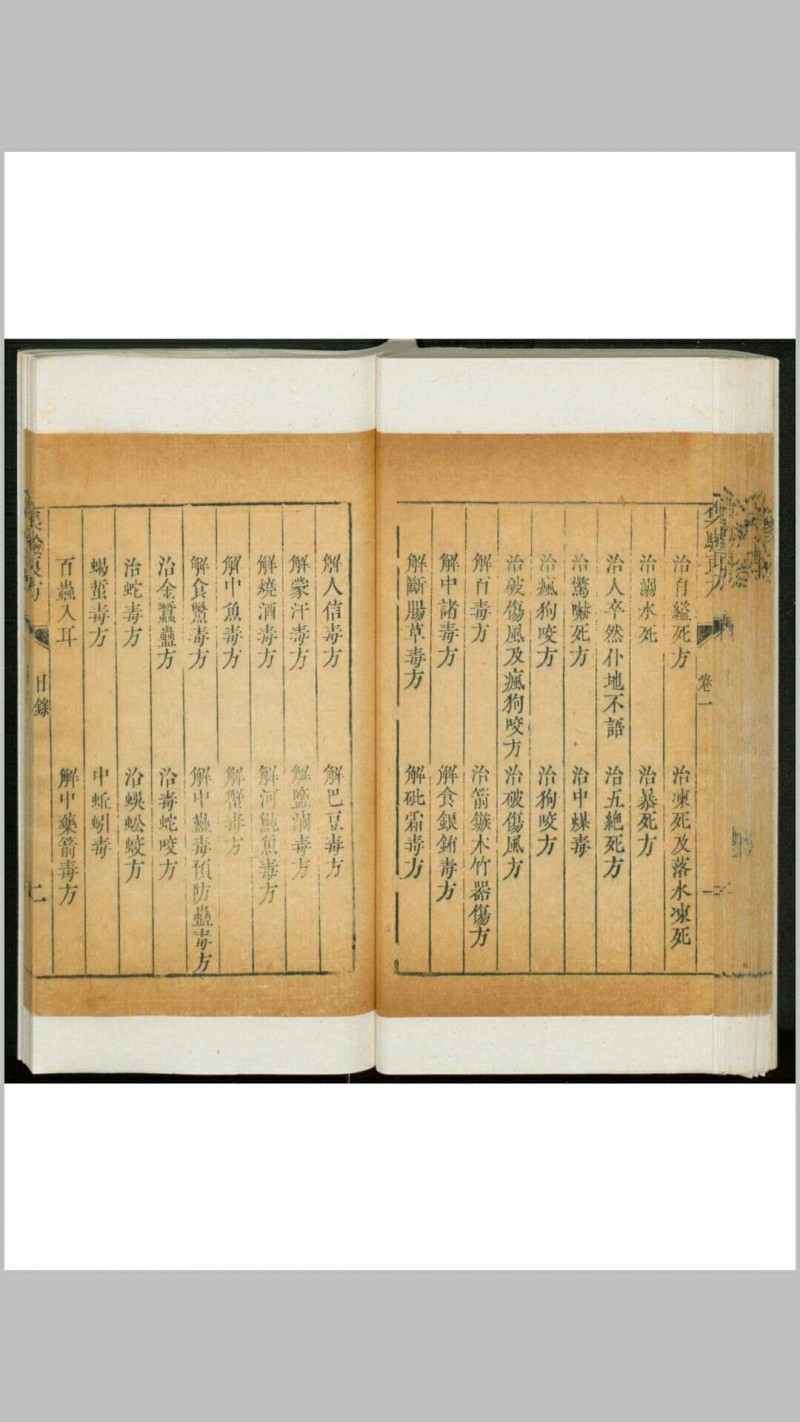 卷一
治自縊死方　治凍死及落水凍死
治溺水死　治暴死方
治人卒然仆地不語　治五絶死方
治驚嚇死方　治中煤毒
治瘋狗咬方　治狗咬方
治破傷風及瘋狗咬方　治破傷風方
解百毒方　治箭鏃木竹器傷方
解中諸毒方　解食銀銪毒方
解斷腸草毒方　解砒霜毒方
解人信毒方　解巴豆毒方
解蒙汗毒方　解鹽滷毒方
解燒酒毒方　解河魨魚毒方
解中魚毒方　解蟹毒方
解食鱉毒方　解中蟲毒預防蠱毒方
治金蠶蠱方　治毒蛇咬方
治蛇毒方　治蜈蚣蛟方
蝎蜇毒方　中蚯蚓毒
百蟲入耳　解中藥箭毒方
目錄
二